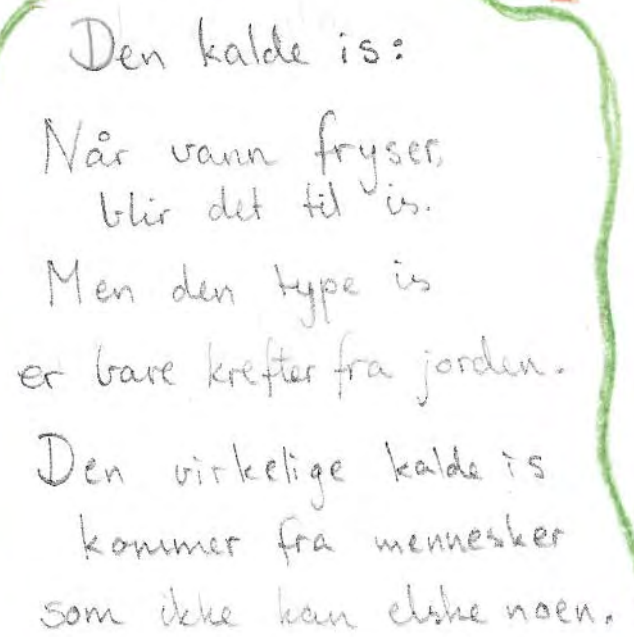 Den kalde is:
Når vann fryser,
blir det til is.
Men den type is
er bare krefter fra jorden.
Den virkelige kalde is
kommer fra mennesker
som ikke kan elske noen.